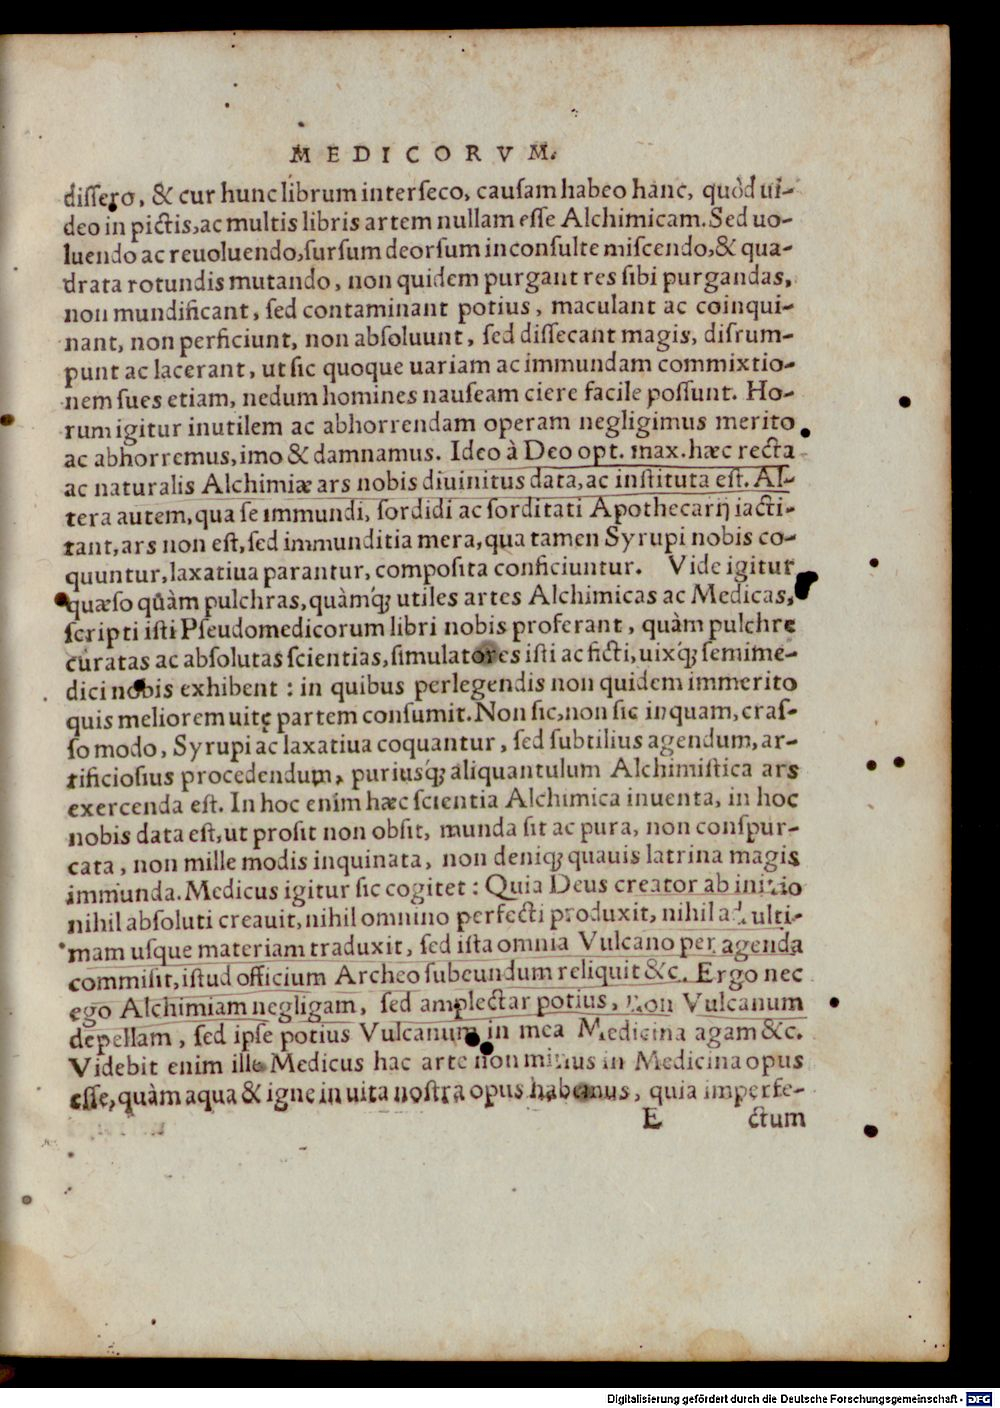 MEDICORVM.
dissero, & cur hunc librum interseco, causam habeo hanc, quòd ui-
deo in pictis, ac multis libris artem nullam esse Alchimicam. Sed uo-
luendo ac reuoluendo, sursum deorsum inconsulte miscendo, & qua-
drata rotundis mutando, non quidem purgant res sibi purgandas,
non mundificant, sed contaminant potius, maculant ac coinqui-
nant, non perficiunt, non absoluunt, sed dissecant magis, disrum-
punt ac lacerant, ut sic quoque uariam ac immundam commixtio-
nem sues etiam, nedum homines nauseam ciere facile possunt. Ho-
rum igitur inutilem ac abhorrendam operam negligimus merito
ac abhorremus, imo & damnamus. Ideo à Deo opt. max. hæc recta
ac naturalis Alchimiæ ars nobis diuinitus data, ac instituta est. Al-
tera autem, qua se immundi, sordidi ac sorditati Apothecarij iacti-
tant, ars non est, sed immunditia mera, qua tamen Syrupi nobis co-
quuntur, laxatiua parantur, composita conficiuntur. Vide igitur
quæso quàm pulchras, quàmq; utiles artes Alchimicas ac Medicas,
scripti isti Pseudomedicorum libri nobis proferant, quàm pulchre
curatas ac absolutas scientias, simulatores isti ac ficti, uixq; semime-
dici nobis exhibent: in quibus perlegendis non quidem immerito
quis meliorem uitę partem consumit. Non sic, non sic inquam, cras-
so modo, Syrupi ac laxatiua coquantur, sed subtilius agendum, ar-
tificiosius procedendum, puriusq; aliquantulum Alchimistica ars
exercenda est. In hoc enim hæc scientia Alchimica inuenta, in hoc
nobis data est, ut prosit non obsit, munda sit ac pura, non conspur-
cata, non mille modis inquinata, non deniq; quauis latrina magis
immunda. Medicus igitur sic cogitet: Quia Deus creator ab initio
nihil absoluti creauit, nihil omnino perfecti produxit, nihil ad ulti-
mam usque materiam traduxit, sed ista omnia Vulcano per agenda
commisit, istud officium Archeo subeundum reliquit &c. Ergo nec
ego Alchimiam negligam, sed amplectar potius, non Vulcanum
depellam, sed ipse potius Vulcanum in mea Medicina agam &c.
Videbit enim ille Medicus hac arte non minus in Medicina opus
esse, quàm aqua & igne in uita nostra opus habemus, quia imperfe-
E ctum
Digitalisierung gefördert durch die Deutsche Forschungsgemeinschaft - DFG